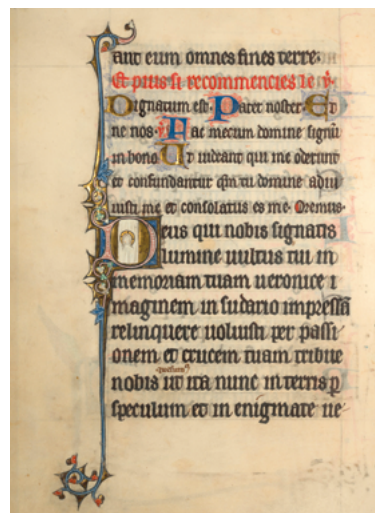 ant eum omnes fines terre.
Et puis si recommencies le v.
Dignatum est. Pater noster. Et
ne nos. Fac mecum domine signū
in bono Ut videant qui me oderunt
et confundantur qm̄ tu domine adiu
uisti me et consolatus es me. Oremus.
Deus qui nobis signatis
lumine uultus tui in
memoriam tuam ueronice i
maginem in sudario impressā
relinquere uoluisti per passi
onem et crucem tuam tribue
nobis ut ita nunc in terris p
speculum et in enigmate ue